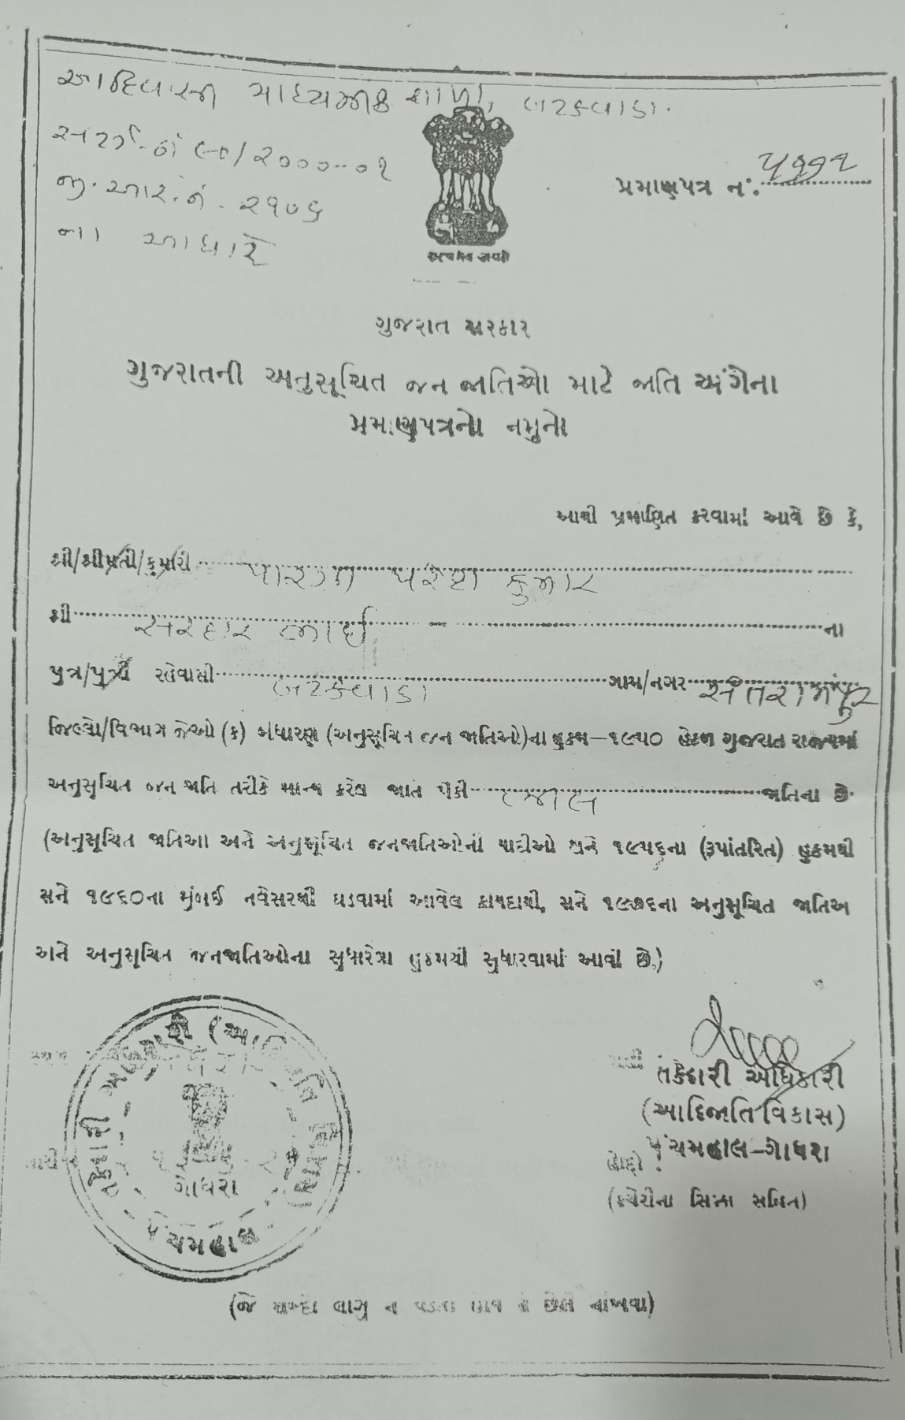 આદિવાસી માધ્યમિક શાળા, બટકવાડા.
/૨૦૦૦-૦૧
જી.આર.નં. ૨૧૦૬
ના આધારે
પ્રમાણપત્ર નં. ૫૧૧૧
ગુજરાત સરકાર
ગુજરાતની અનુસૂચિત જન જાતિઓ માટે જાતિ અંગેના
પ્રમાણપત્રનો નમુનો
આથી પ્રમાણિત કરવામાં આવે છે કે,
શ્રી/શ્રીમતી/કુમારી પરેશ કુમાર
શ્રી સરદાર ભાઈ ના
પુત્ર/પુત્રી રહેવાસી બટકવાડા ગામ/નગર સંતરામપુર
જિલ્લો/વિભાગ જેઓ (ક) બંધારણ (અનુસૂચિત જન જાતિઓ)ના હુકમ-૧૯૫૦ હેઠળ ગુજરાત રાજ્યમાં
અનુસૂચિત જન જાતિ તરીકે માન્ય કરેલ જાત પૈકી જાતિના છે.
(અનુસૂચિત જાતિઆ અને અનુસૂચિત જનજાતિઓની યાદીઓ સને ૧૯૫૬ના (રૂપાંતરિત) હુકમથી
સને ૧૯૬૦ના મુંબઈ નવેસરથી ઘડવામાં આવેલ કાયદાથી, સને ૧૯૭૬ના અનુસૂચિત જાતિઅ
અને અનુસૂચિત જનજાતિઓના સુધારેલા હુકમથી સુધારવામાં આવી છે.)
તકેદારી અધિકારી
(આદિજાતિ વિકાસ)
પંચમહાલ-ગોધરા
હોદ્દો :
(કચેરીના સિક્કા સહિત)
ગોધરા
પંચમહાલ
(જે શબ્દો લાગુ ન છેકી નાંખવા)